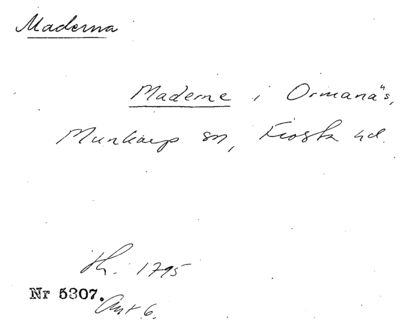 Maderna
Maderne i Ormanäs,
Munkarp sn, Frosta hd.
th. 1795
Nr 5307.
Ant 6.